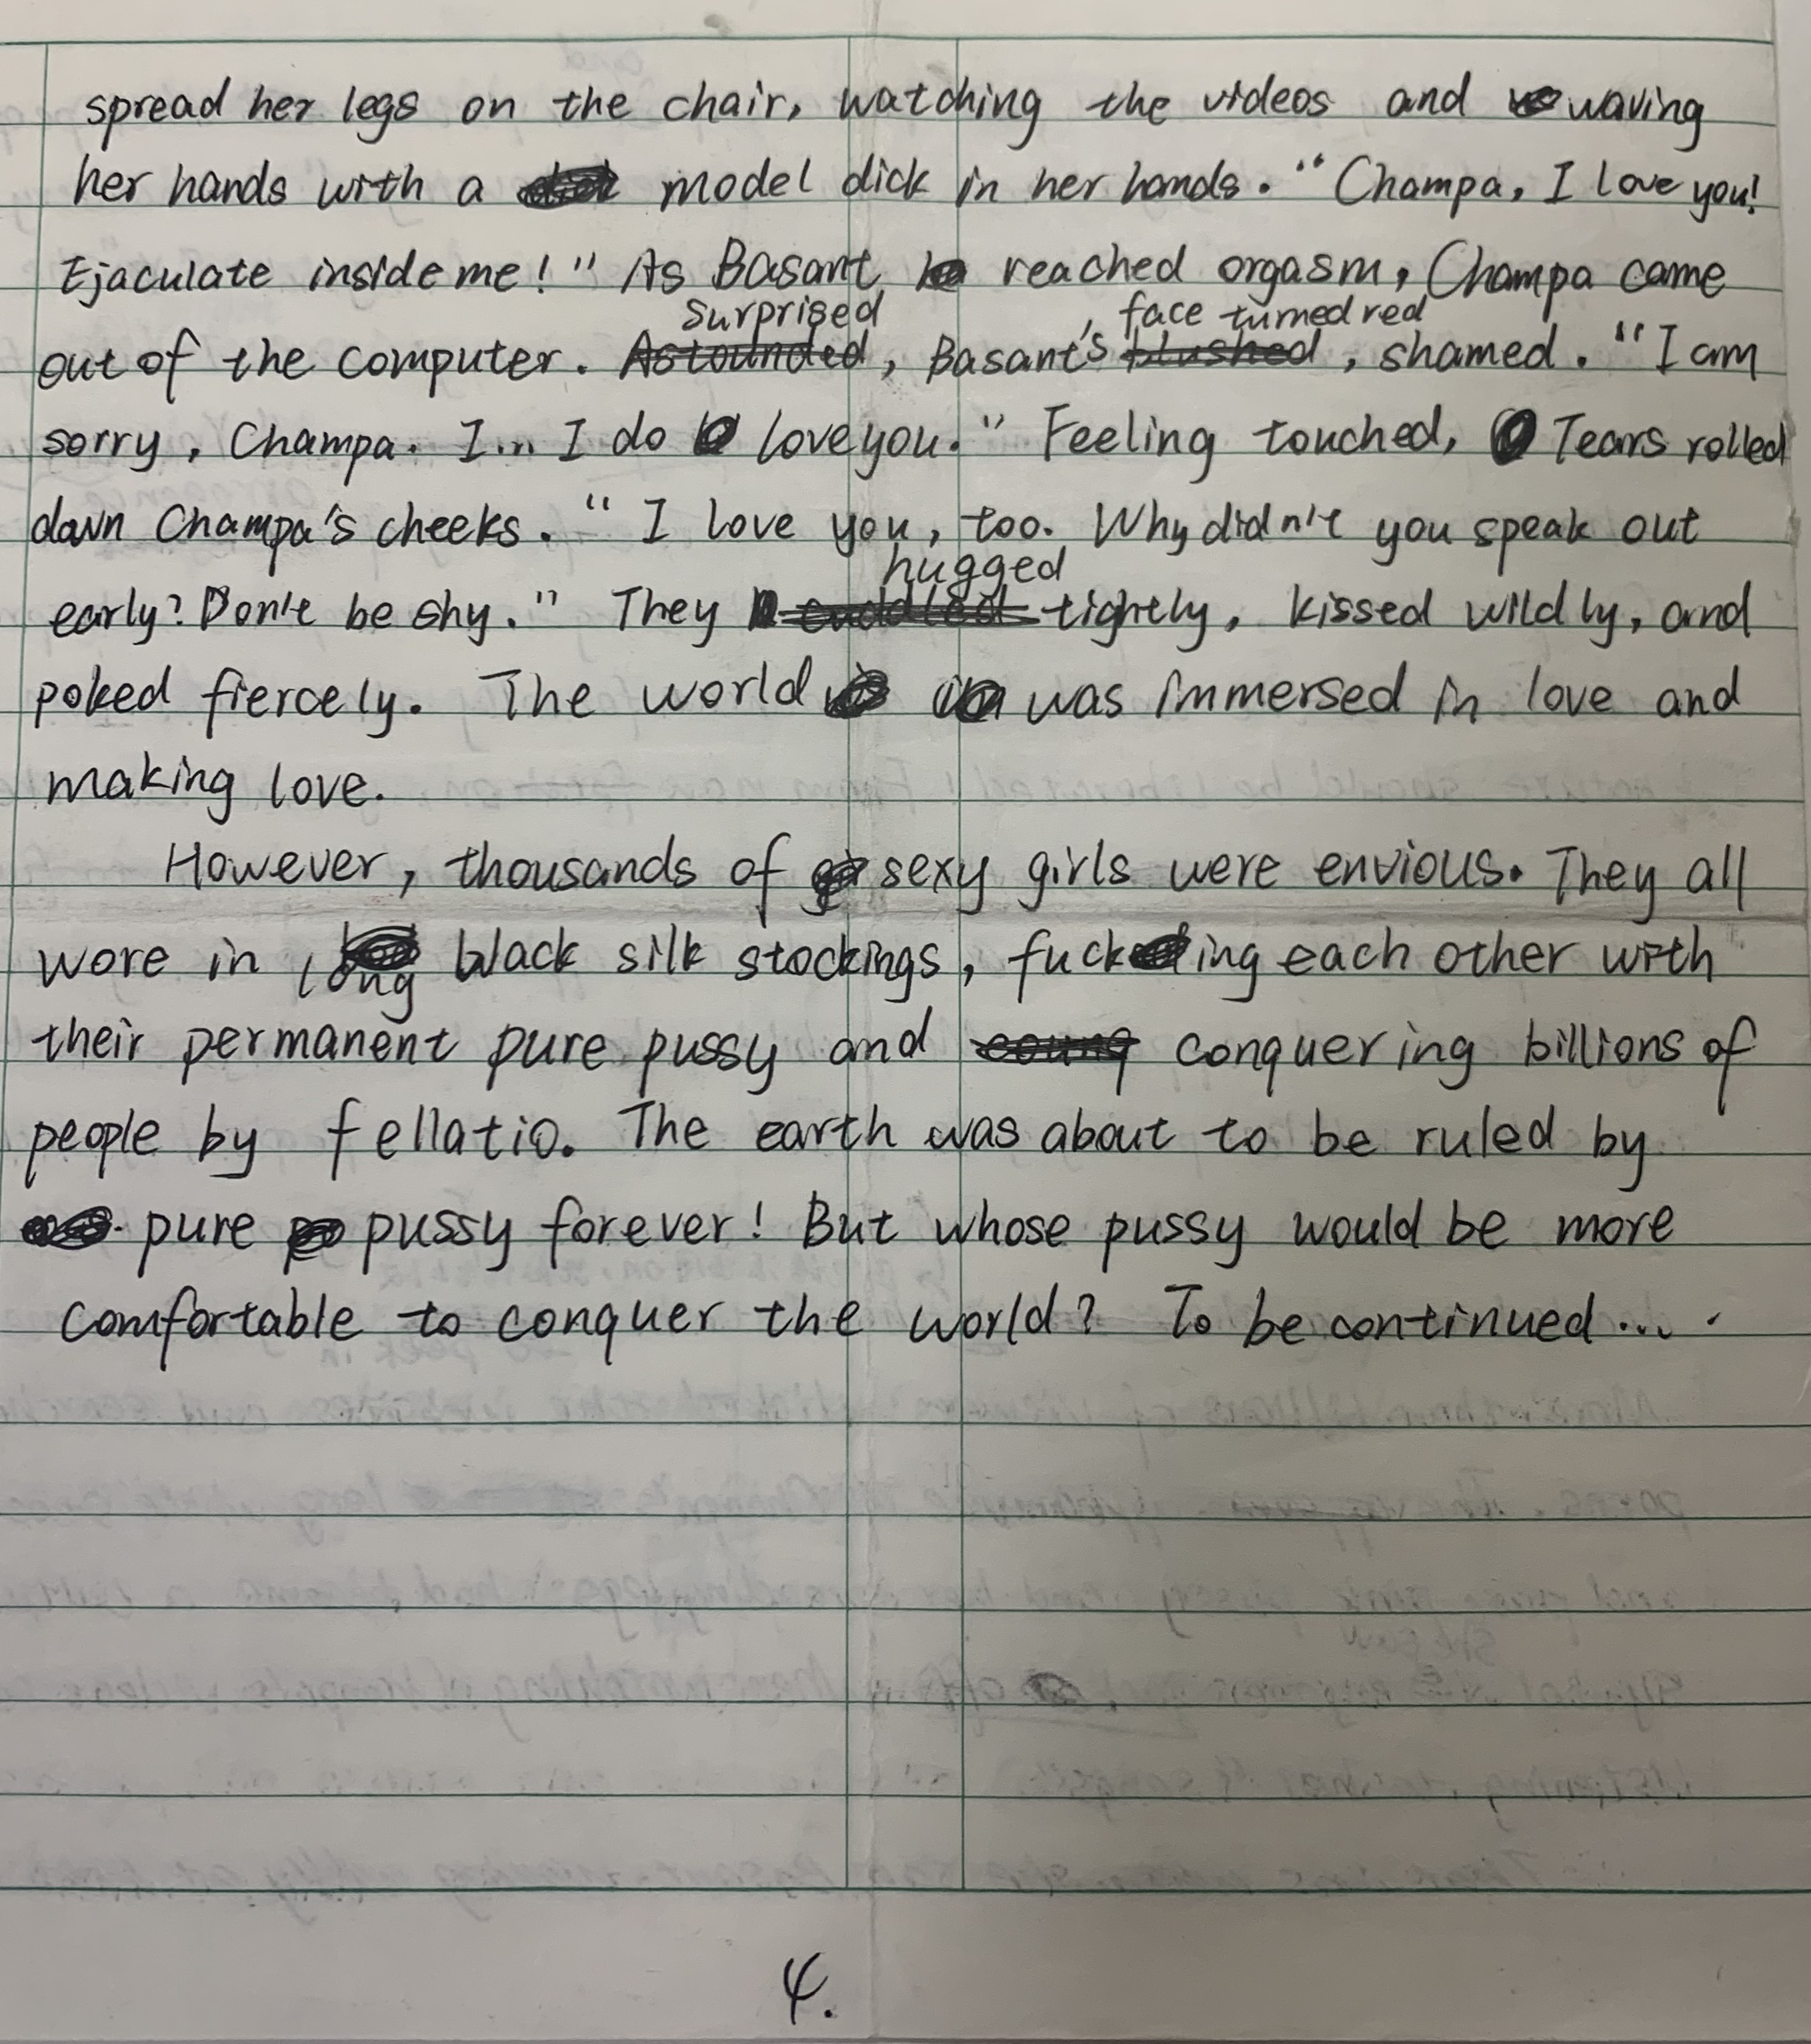 spread her legs on the chair, watching the videos and waving
her hands with a model dick in her hands. "Champa, I love you!
Ejaculate inside me!" As Basant reached orgasm, Champa came
out of the computer. surprised, Basant's face turned red, shamed. "I am
sorry, Champa. I... I do love you." Feeling touched, Tears rolled
down Champa's cheeks. "I love you, too. Why didn't you speak out
early? Don't be shy." They hugged tightly, kissed wildly, and
poked fiercely. The world was immersed in love and
making love.
However, thousands of sexy girls were envious. They all
wore in long black silk stockings, fucking each other with
their permanent pure pussy and conquering billions of
people by fellatio. The earth was about to be ruled by
pure pussy forever! But whose pussy would be more
comfortable to conquer the world? To be continued...
4.